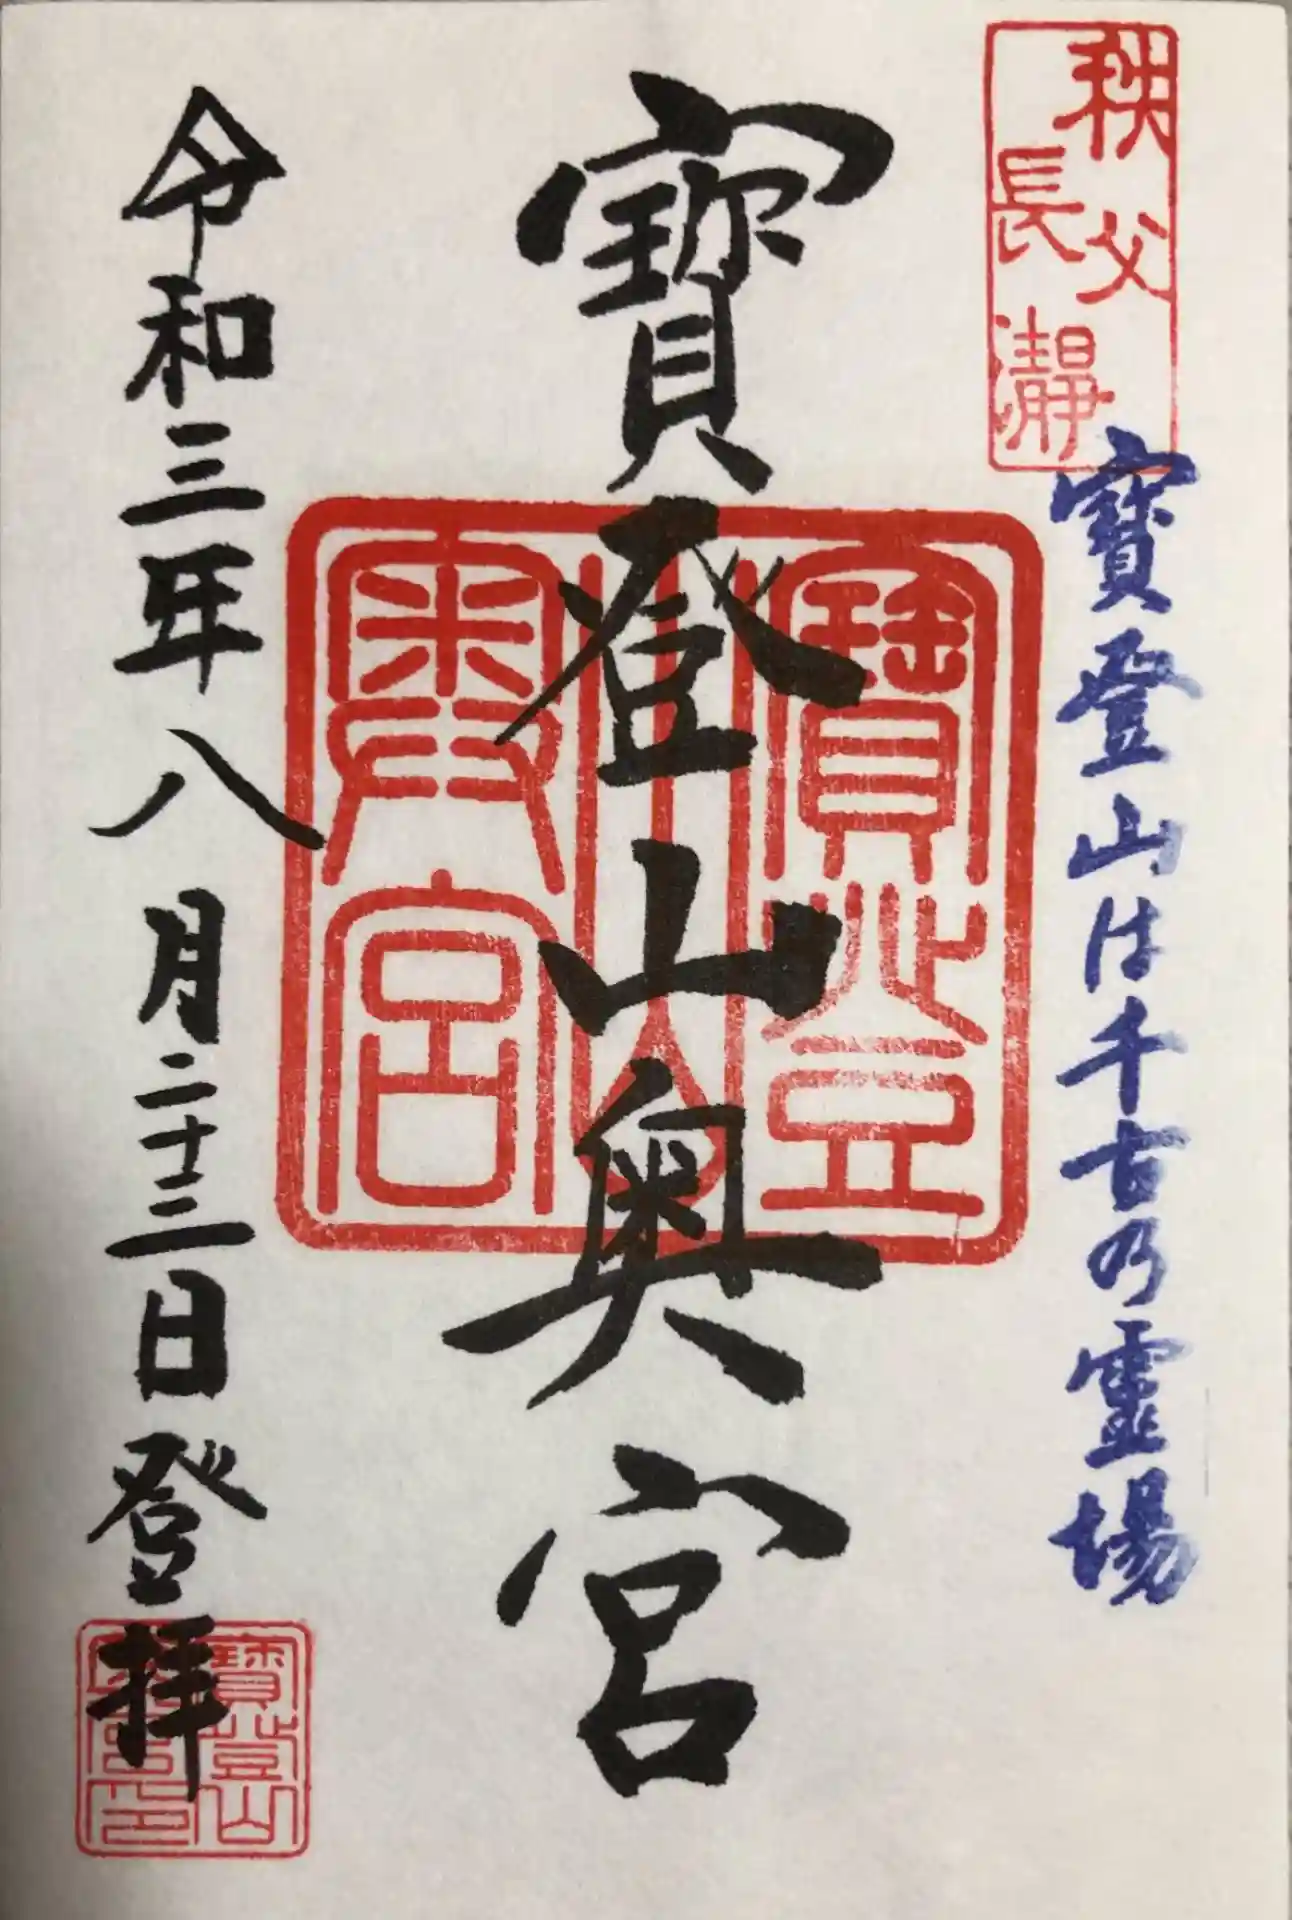 秩父
長瀞
寶登山は千古乃霊場
寶登山奥宮
寶登
山
奥宮
令和三年八月二十三日登拝
寶登山
奥宮印